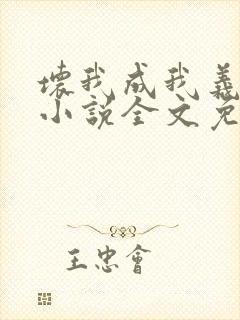 壞我成我義
小說全文免
王忠會